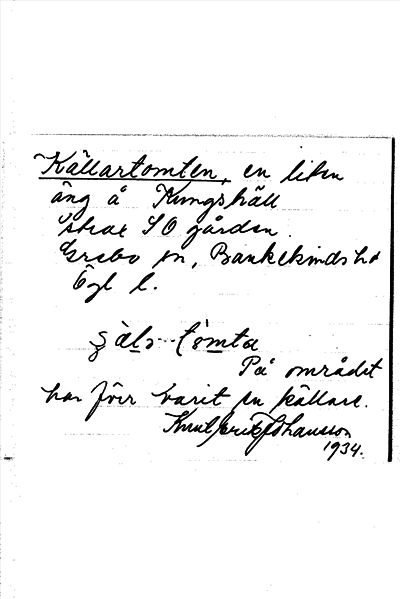 Källartomten, en liten
äng å Kungshäll
strax SO gården.
Grebo sn, Bankekinds hd
Ögl l.
tomta
På området
har förr varit en källare.
Knut Erik Johansson
1934.